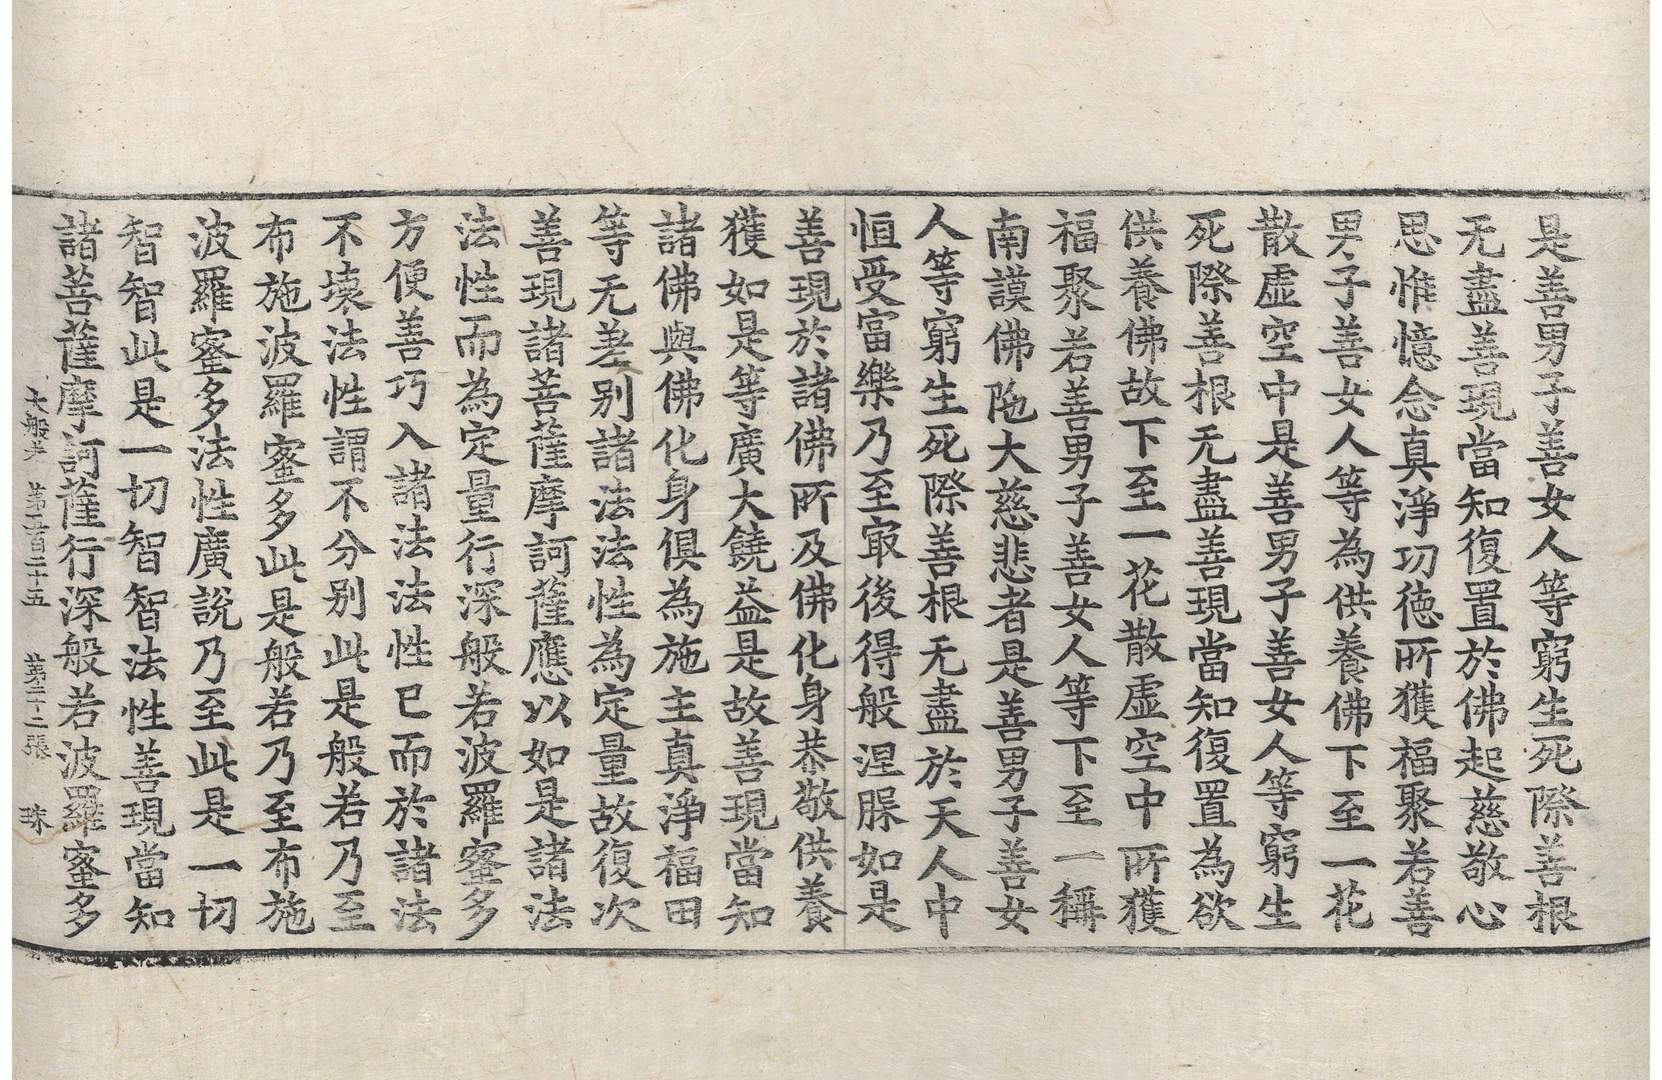 是善男子善女人等窮生死際善根
无盡善現當知復置於佛起慈敬心
思惟憶念真淨功德所獲福聚若善
男子善女人等為供養佛下至一花
散虛空中是善男子善女人等窮生
死際善根无盡善現當知復置為欲
供養佛故下至一花散虛空中所獲
福聚若善男子善女人等下至一稱
南謨佛陁大慈悲者是善男子善女
人等窮生死際善根无盡於天人中
恒受富樂乃至㝡後得般涅槃如是
善現於諸佛所及佛化身恭敬供養
獲如是等廣大饒益是故善現當知
諸佛與佛化身俱為施主真淨福田
等无差別諸法法性為定量故復次
善現諸菩薩摩訶薩應以如是諸法
法性而為定量行深般若波羅蜜多
方便善巧入諸法法性已而於諸法
不壞法性謂不分別此是般若乃至
布施波羅蜜多此是般若乃至布施
波羅蜜多法性廣說乃至此是一切
智智此是一切智智法性善現當知
諸菩薩摩訶薩行深般若波羅蜜多
大般若 第五百二十五 第二十二張 珠